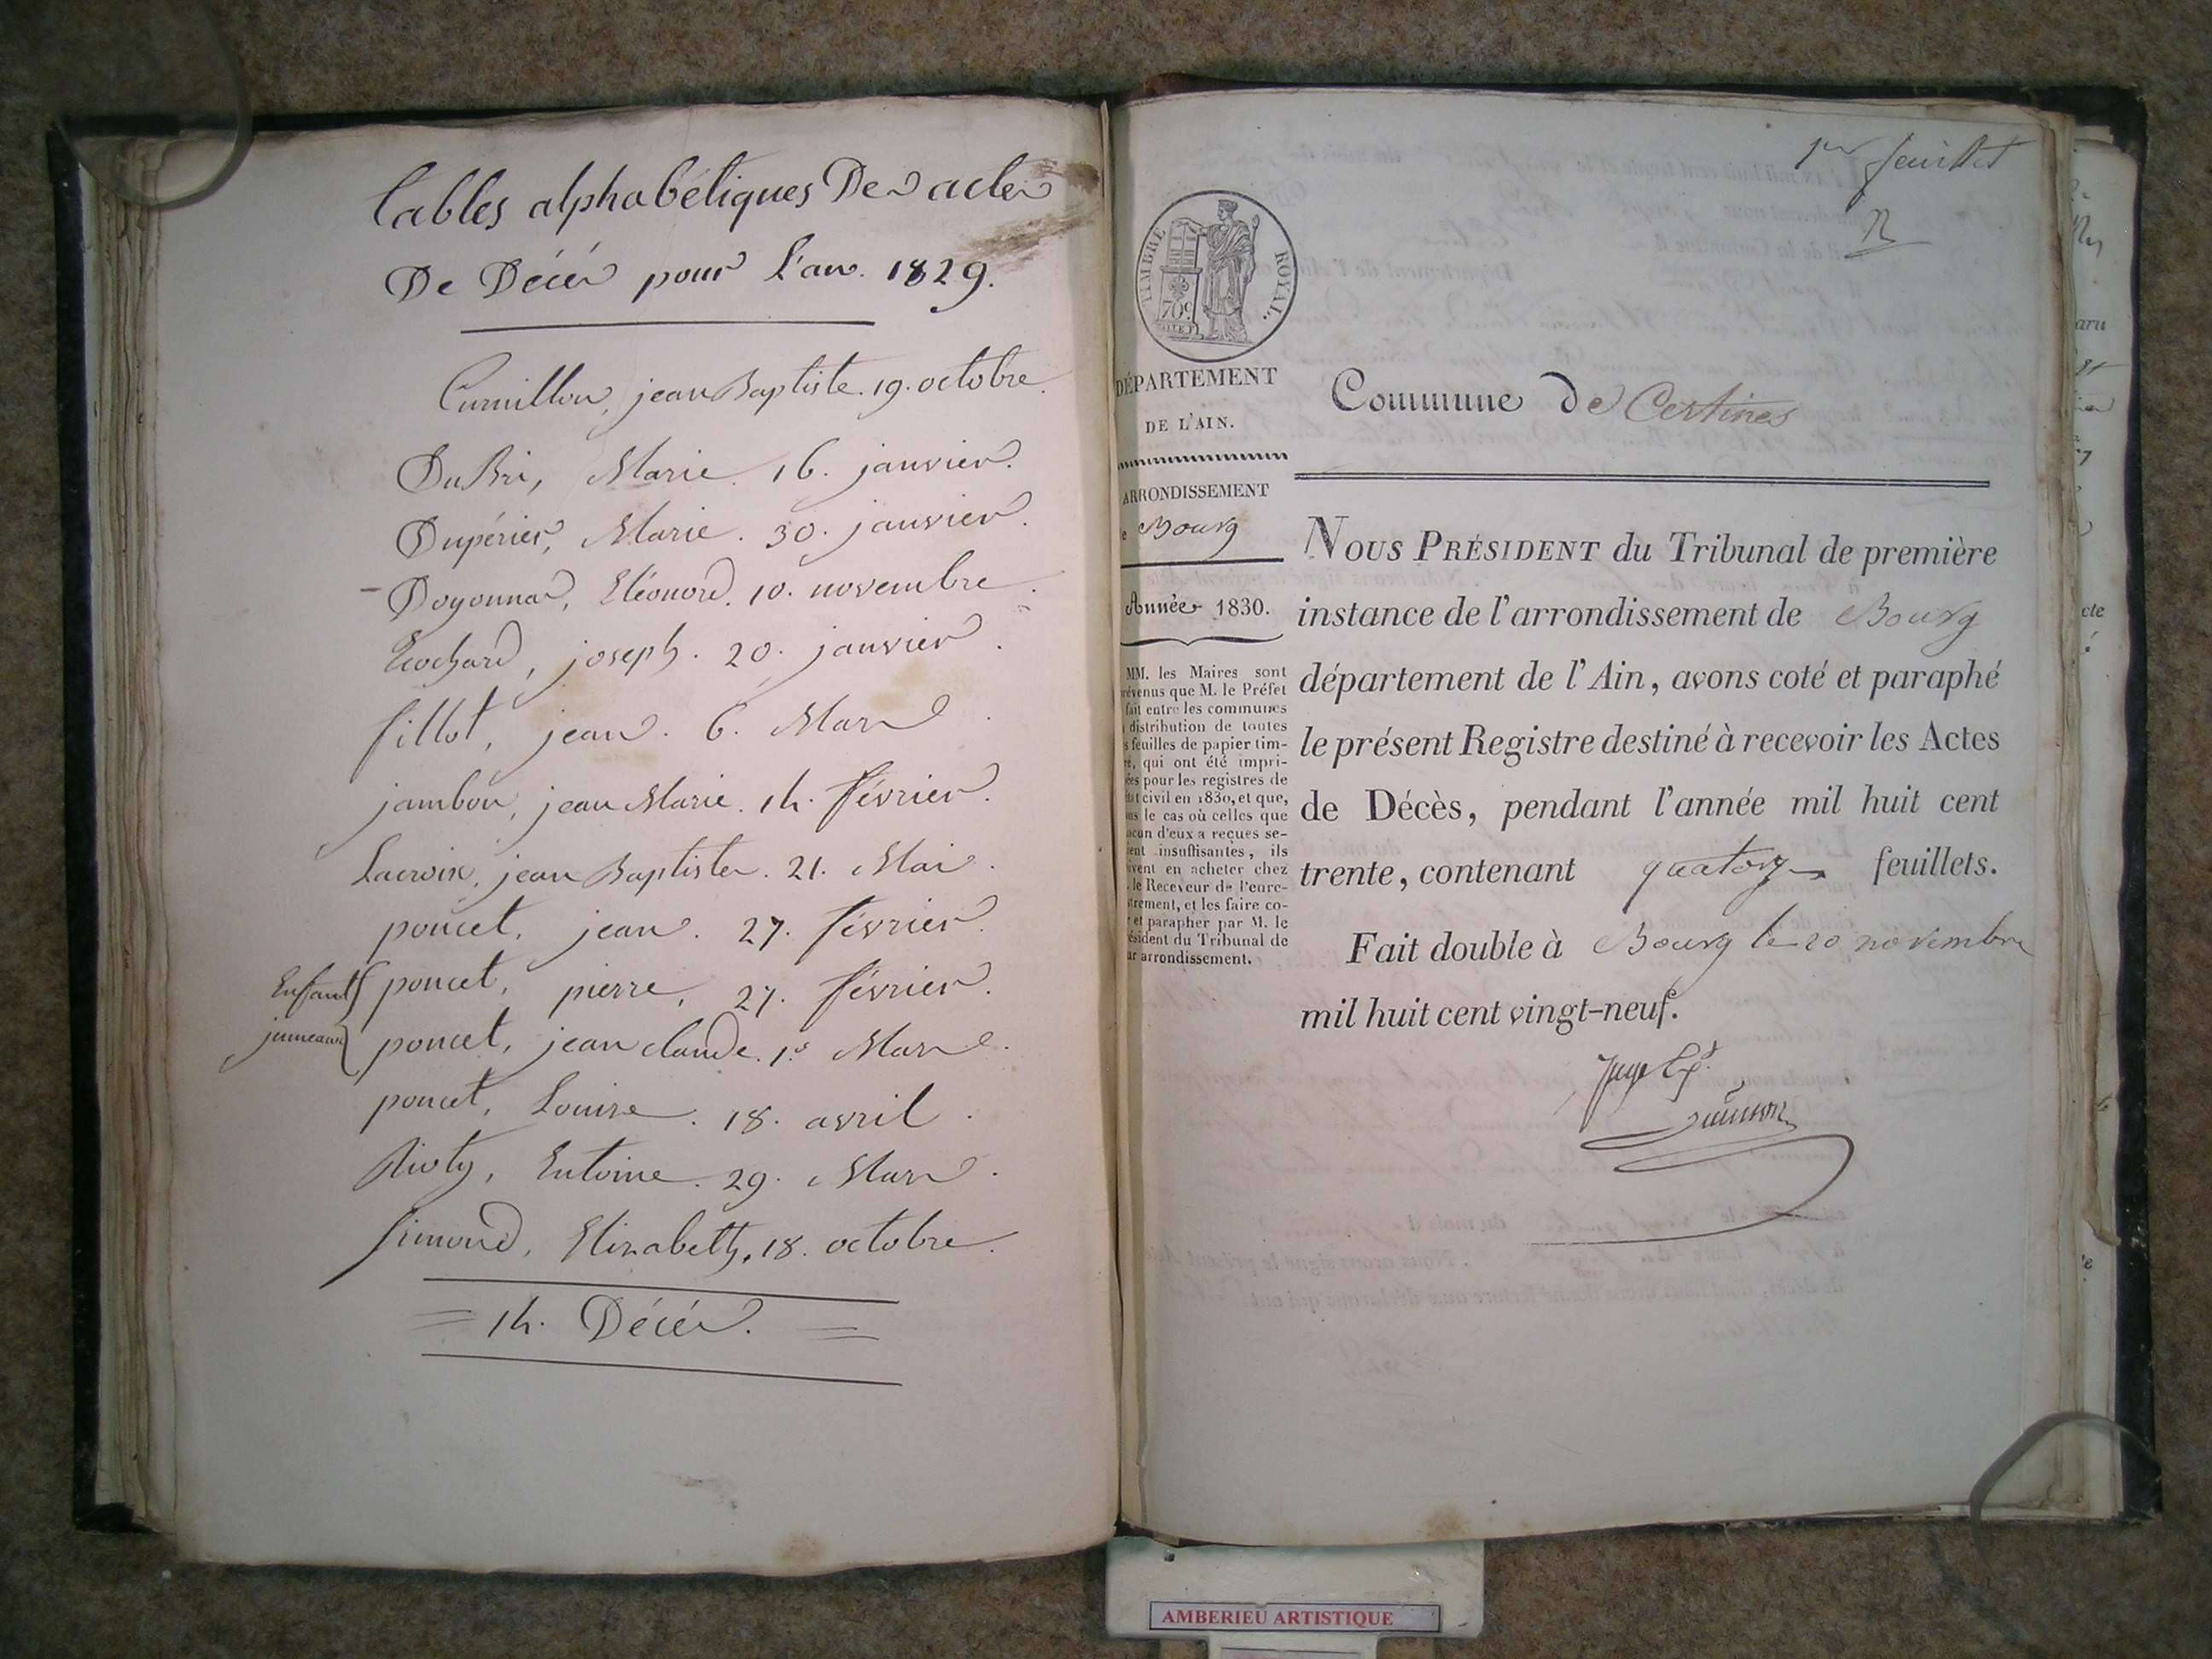 Tables alphabétiques Des actes
De Décès pour L'an. 1829.
Curnillon, jean Baptiste. 19. octobre.
DuBri, Marie. 16. janvier.
Dupérier, Marie. 30. janvier.
- Doyonnas, Eléonord. 10. novembre.
Ecochard, joseph. 20. janvier.
fillot, jean. 6. Mars.
jambon, jean Marie. 14. février.
Lacroix, jean Baptiste. 21. Mai.
poncet, jean. 27. février.
Enfants { poncet, pierre, 27. février.
jumeaux { poncet, jean claude. 1er Mars.
poncet, Louise. 18. avril.
Entoine. 29. Mars.
Simond, Elizabeth, 18. octobre.
= 14. Décès. =
1er feuillet
TIMBRE ROYAL.
70c
DÉPARTEMENT
DE L'AIN.
ARRONDISSEMENT
Bourg
Année 1830.
MM. les Maires sont
prévenus que M. le Préfet
fait entre les communes
distribution de toutes
feuilles de papier tim-
qui ont été impri-
pour les registres de
civil en 1830, et que,
le cas où celles que
d'eux a reçues se-
insuffisantes, ils
en acheter chez
le Receveur de l'enre-
et les faire co-
et parapher par M. le
Président du Tribunal de
arrondissement.
Commune de Certines
NOUS PRÉSIDENT du Tribunal de première
instance de l'arrondissement de Bourg
département de l'Ain, avons coté et paraphé
le présent Registre destiné à recevoir les Actes
de Décès, pendant l'année mil huit cent
trente, contenant quatorze feuillets.
Fait double à Bourg le 20 novembre
mil huit cent vingt-neuf.
AMBERIEU ARTISTIQUE